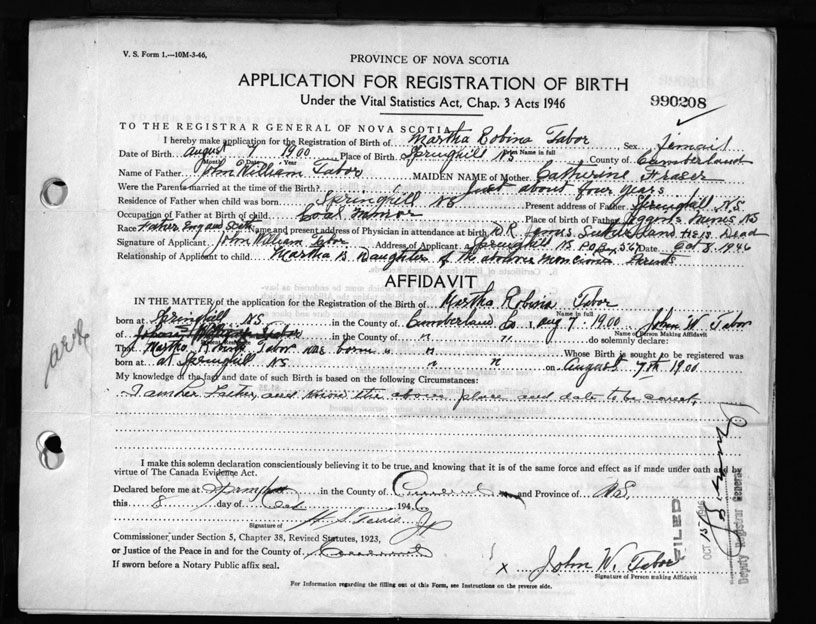 V. S. Form 1.—10M-3-46.
PROVINCE OF NOVA SCOTIA
APPLICATION FOR REGISTRATION OF BIRTH
Under the Vital Statistics Act, Chap. 3 Acts 1946
990208
TO THE REGISTRAR GENERAL OF NOVA SCOTIA
I hereby make application for the Registration of Birth of Martha Robina Tabor Sex
Print Name in full
Date of Birth august 7 1900 Place of Birth Springhill NS County of Cumberland
Month Date Year
Name of Father John William Tabor MAIDEN NAME of Mother Catherine Fraser
Were the Parents married at the time of the Birth? Just about four years
Residence of Father when child was born Springhill NS Present address of Father Springhill NS
Occupation of Father at Birth of child Coal Place of Birth of Father Mines NS
Race Name and present address of Physician in attendance at birth D.R. He is Dead
Signature of Applicant John William Tabor Address of Applicant Springhill NS P.O.B. 567 Date Oct 8. 1946
Relationship of Applicant to child Martha is Daughter of the above Parents
AFFIDAVIT
IN THE MATTER of the application for the Registration of the Birth of Martha Robina Tabor
Name in full
born at Springhill NS in the County of Cumberland Co Aug 7. 1900 John W Tabor
Name of Person Making Affidavit
of in the County of " " do solemnly declare:
That Martha Robina Tabor was born " " Whose Birth is sought to be registered was
born at at Springhill NS " " on August 7th 1900
My knowledge of the fact and date of such Birth is based on the following Circumstances:
I am her Father, and know the above place and date to be correct,
I make this solemn declaration conscientiously believing it to be true, and knowing that it is of the same force and effect as if made under oath and by
virtue of The Canada Evidence Act.
Declared before me at in the County of and Province of N.S.
this 8 day of Oct 1946
Signature of
Commissioner under Section 5, Chapter 38, Revised Statutes, 1923,
or Justice of the Peace in and for the County of
If sworn before a Notary Public affix seal.
x John W. Tabor
Signature of Person making Affidavit
For Information regarding the filling out of this Form, see Instructions on the reverse side.
FILED
OCT 15 1946
Deputy Registrar General